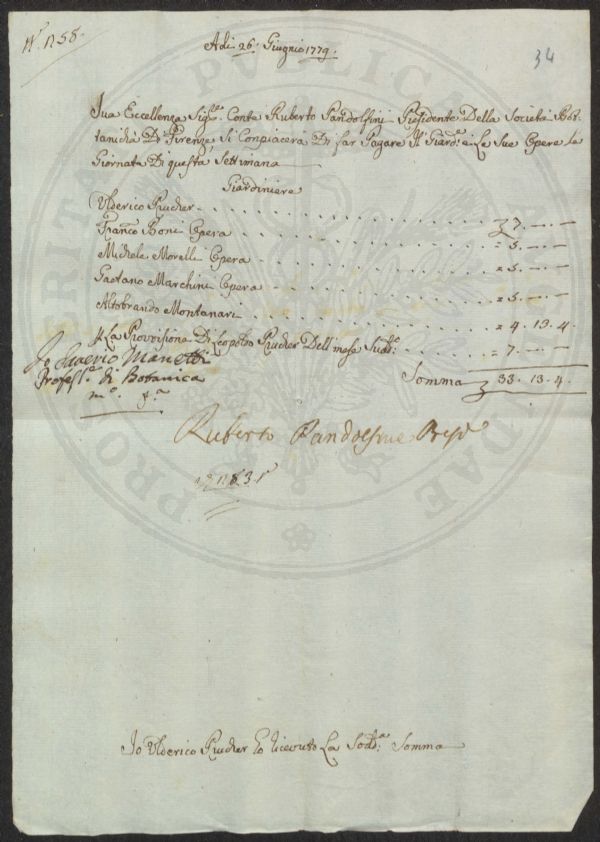 N.º 1258.
34
Adi: 26: Giugnio 1779.
Sua Eccellenza Sigre. Conte Ruberto Pandolfini Presidente Della Società Bot:
tanicha Di Firenze, Si Conpiacerà Di far Pagare Il Giard.e e Le Sue Opere Le
Giornata Di questa Settimana
Giardiniere
Ulderico Prucher 7. — . —
Franco Boni Opera = 5. — . —
Michele Morelli Opera = 5. — . —
Gaetano Marchini Opera = 5. — . —
Altobrando Montanari = 4. 13. 4.
La Provisione Di Leopoldo Prucher Dell mese Sudo: = 7. — . —
Somma 33. 13. 4.
Io Saverio Manetti
Profess.e di Botanica
m.o
Ruberto Pandolfini Presid
Io Ulderico Prucher Ho Ricevuto La Sod.a Somma
PROSPERITATI PUBLICAE AUGENDAE